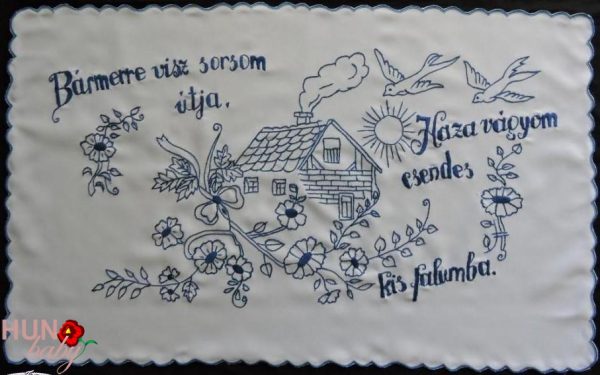 Bármerre visz sorsom
útja,
Haza vágyom
csendes
kis falumba.
HUN
baby